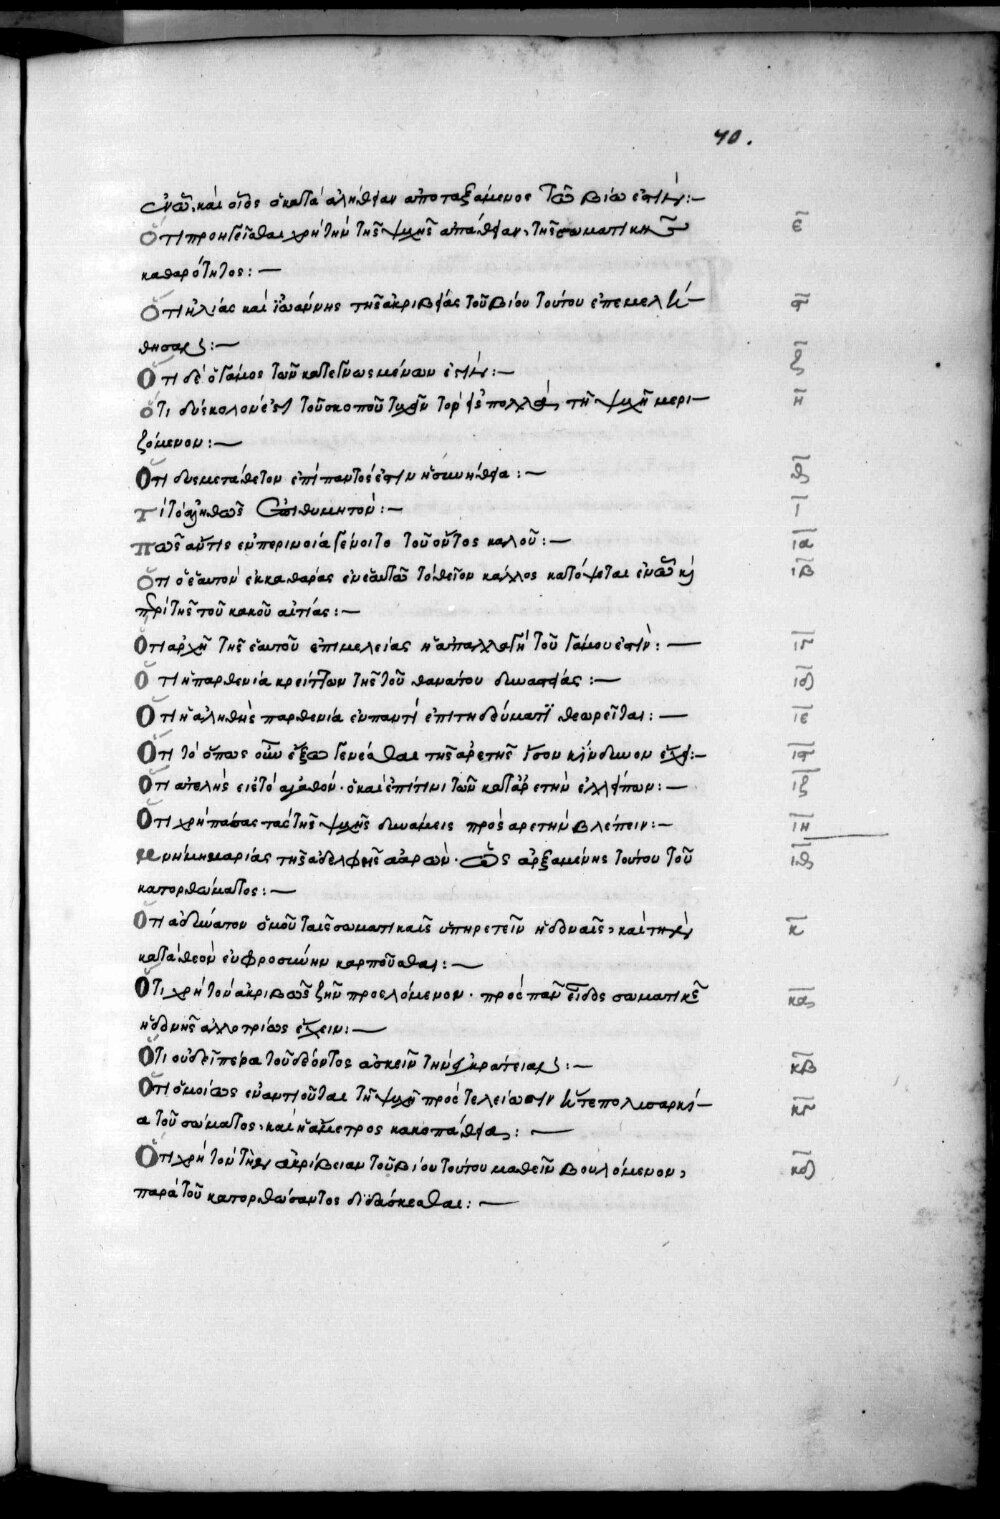 40.
ἐν ᾧ, καὶ οἷος ὁ κατὰ ἀλήθειαν ἀποταξάμενος τῷ βίῳ ἐστίν:— 
Ὅτι προηγεῖσθαι χρὴ τὴν τῆς ψυχῆς ἀπάθειαν, τῆς σωματικῆς ε̅
καθαρότητος:—
Ὅτι ἠλίας καὶ ἰωάννης τῆς ἀκριβείας τοῦ βίου τούτου ἐπεμελή- ϛ̅
θησαν:—
Ὅτι οὐδὲ ὁ γάμος τῶν κατεγνωσμένων ἐστίν:— ζ̅
Ὅτι δύσκολόν ἐστι τοῦ σκοποῦ τυχεῖν τὸν εἰς πολλὰ τῇ ψυχῇ μερι- η̅
ζόμενον:—
Ὅτι δυσμετάθετον ἐπὶ παντός ἐστιν ἡ συνήθεια:— θ̅
τί τὸ ἀληθῶς ἐπιθυμητόν:— ι̅
πῶς ἄν τις ἐν περινοίᾳ γένοιτο τοῦ ὄντος καλοῦ:— ια̅
Ὅτι ὁ ἑαυτὸν ἐκκαθάρας ἐν ἑαυτῷ τὸ θεῖον κάλλος κατόψεται ἐν ᾧ καὶ ιβ̅
περὶ τῆς τοῦ κακοῦ αἰτίας:—
Ὅτι ἀρχὴ τῆς ἑαυτοῦ ἐπιμελείας ἡ ἀπαλλαγὴ τοῦ γάμου ἐστίν:— ιγ̅
Ὅτι ἡ παρθενία κρείττων τῆς τοῦ θανάτου δυναστείας:— ιδ̅
Ὅτι ἡ ἀληθὴς παρθενία ἐν παντὶ ἐπιτηδεύματι θεωρεῖται:— ιε̅
Ὅτι τὸ ὅπως οὖν ἔξω γενέσθαι τῆς ἀρετῆς ἴσον κίνδυνον ἔχει:— ιϛ̅
Ὅτι ἀτελὴς εἰς τὸ ἀγαθόν· ὁ καὶ ἐπί τινι τῶν κατ' ἀρετὴν ἐλλείπων:— ιζ̅
Ὅτι χρὴ πάσας τὰς τῆς ψυχῆς δυνάμεις πρὸς ἀρετὴν βλέπειν:— ιη̅
μνήμη μαρίας τῆς ἀδελφῆς ἀαρών· ὡς ἀρξαμένης τούτου τοῦ ιθ̅
κατορθώματος:—
Ὅτι ἀδύνατον ὁμοῦ ταῖς σωματικαῖς ὑπηρετεῖν ἡδοναῖς, καὶ τὴν κ̅
κατὰ θεὸν εὐφροσύνην καρποῦσθαι:—
Ὅτι χρὴ τὸν ἀκριβῶς ζῆν προελόμενον· πρὸς πᾶν εἶδος σωματικῆς κα̅
ἡδονῆς ἀλλοτρίως ἔχειν:—
Ὅτι οὐ δεῖ πέρα τοῦ δέοντος ἀσκεῖν τὴν ἐγκράτειαν:— κβ̅
Ὅτι ὁμοίως ἐναντιοῦται τῇ ψυχῇ πρὸς τελείωσιν ἥτε πολυσαρκί- κγ̅
α τοῦ σώματος, καὶ ἡ ἄμετρος κακοπάθεια:—
Ὅτι χρὴ τὸν τὴν ἀκρίβειαν τοῦ βίου τούτου μαθεῖν βουλόμενον, κδ̅
παρὰ τοῦ κατορθώσαντος διδάσκεσθαι:—